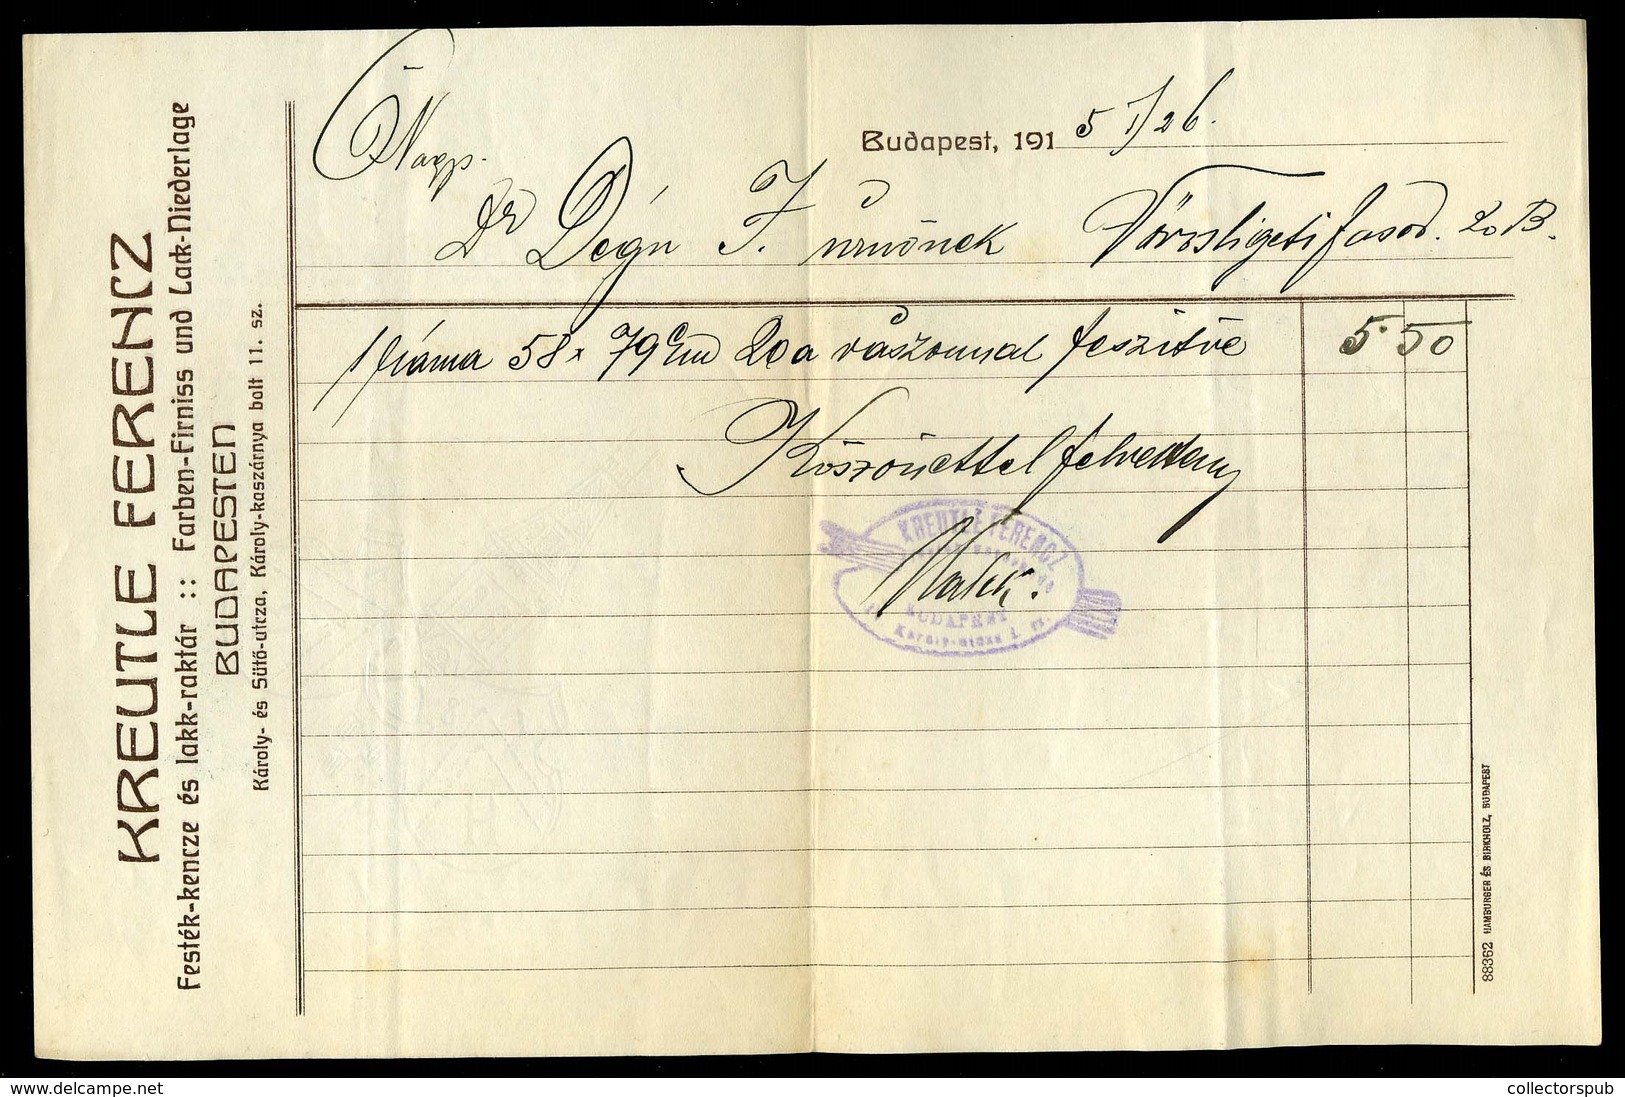 KREUTLE FERENCZ
Festék-kencze és lakk-raktár :: Farben-Firniss und Lack-Niederlage
BUDAPESTEN
Károly- és Sütő-utcza, Károly-kaszárnya bolt 11. sz.
Budapest, 1915 I/26.
Nags.
Dr Dégn F. urnőnek Városligeti fasor. 20 B.
1 ráma 58 x 79 cm 20a vászonnal feszitve 5·50
Köszönettel felvettem
KREUTLE FERENCZ
BUDAPEST
Károly-utcza
88362 HAMBURGER ÉS BIRKHOLZ, BUDAPEST
collectorspub
https://www.delcampe.net